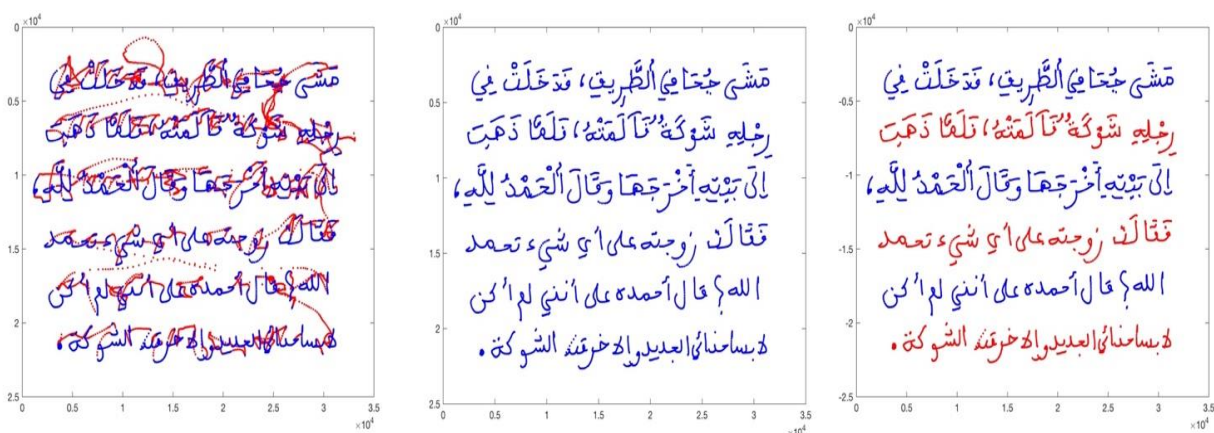 ×10⁴
0
0.5
1
1.5
2
2.5
مَشَى جُحَا فِي اُلطَّرِيقِ، فَدَخَلَتْ فِي
رِجْلِهِ شَوْكَةٌ فَآلَمَتْهُ، فَلَمَّا ذَهَبَ
إِلَى بَيْتِهِ أَخْرَجَهَا وَقَالَ اُلْحَمْدُ لِلَّهِ،
فَقَالَت زوجته على أي شيء تحمد
الله؟ قال أحمده على أنني لم أكن
لابسا حذائي الجديد وإلا خرقته الشوكة.
0 0.5 1 1.5 2 2.5 3 3.5
×10⁴
×10⁴
0
0.5
1
1.5
2
2.5
مَشَى جُحَا فِي اُلطَّرِيقِ، فَدَخَلَتْ فِي
رِجْلِهِ شَوْكَةٌ فَآلَمَتْهُ، فَلَمَّا ذَهَبَ
إِلَى بَيْتِهِ أَخْرَجَهَا وَقَالَ اُلْحَمْدُ لِلَّهِ،
فَقَالَت زوجته على أي شيء تحمد
الله؟ قال أحمده على أنني لم أكن
لابسا حذائي الجديد وإلا خرقته الشوكة.
0 0.5 1 1.5 2 2.5 3 3.5
×10⁴
×10⁴
0
-0.5
-1
-1.5
-2
-2.5
مَشَى جُحَا فِي اُلطَّرِيقِ، فَدَخَلَتْ فِي
رِجْلِهِ شَوْكَةٌ فَآلَمَتْهُ، فَلَمَّا ذَهَبَ
إِلَى بَيْتِهِ أَخْرَجَهَا وَقَالَ اُلْحَمْدُ لِلَّهِ،
فَقَالَت زوجته على أي شيء تحمد
الله؟ قال أحمده على أنني لم أكن
لابسا حذائي الجديد وإلا خرقته الشوكة.
0 0.5 1 1.5 2 2.5 3 3.5
×10⁴